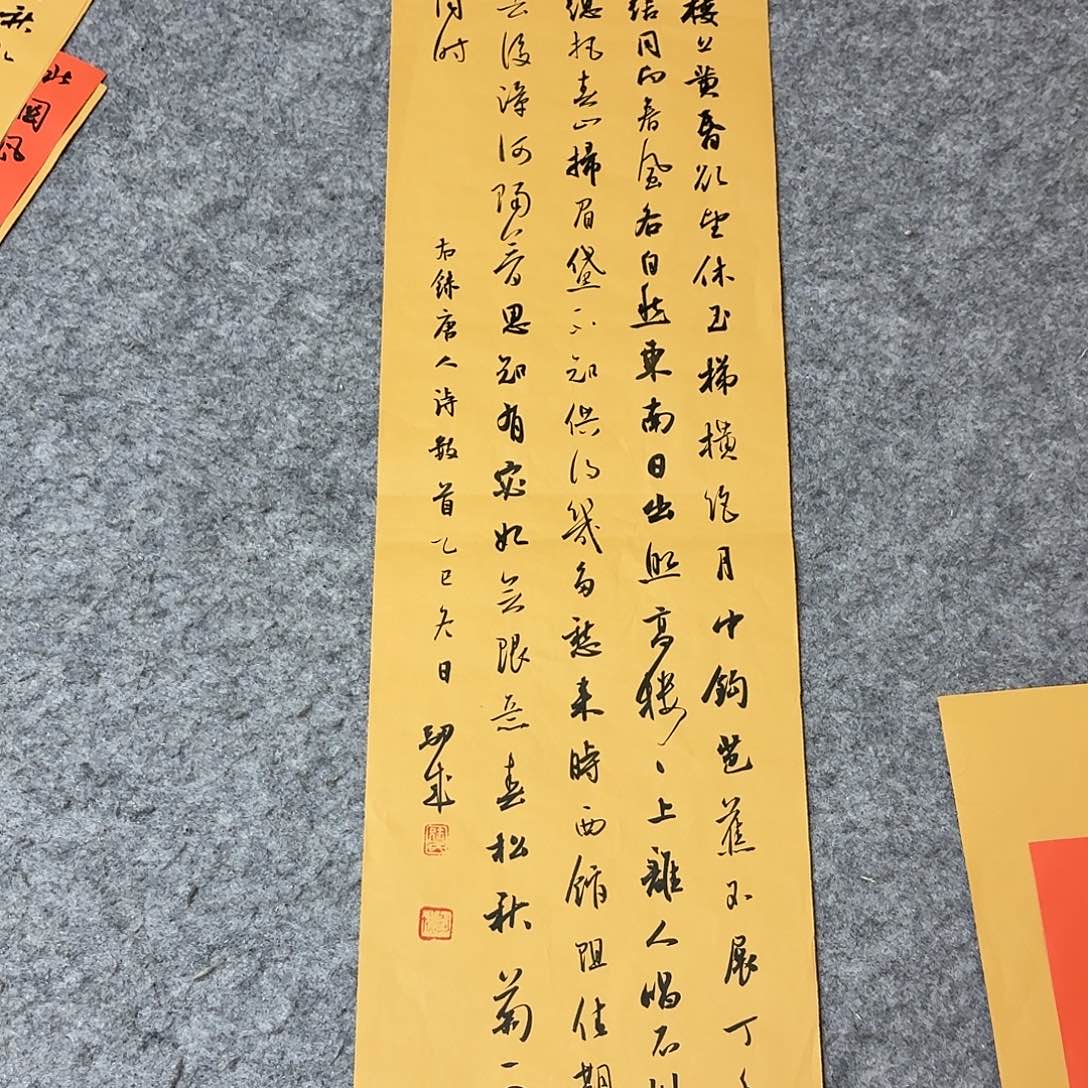 樓上黄昏欲望休玉梯横绝月中鈎芭蕉不展丁
结同向春風各自愁東南日出照高樓、上離人唱石州
總把春山掃眉黛不知供得幾多愁来時西館阻佳期
去後漳河隔夢思知有宓妃無限意春松秋菊可
同时
右録唐人詩数首乙巳冬日